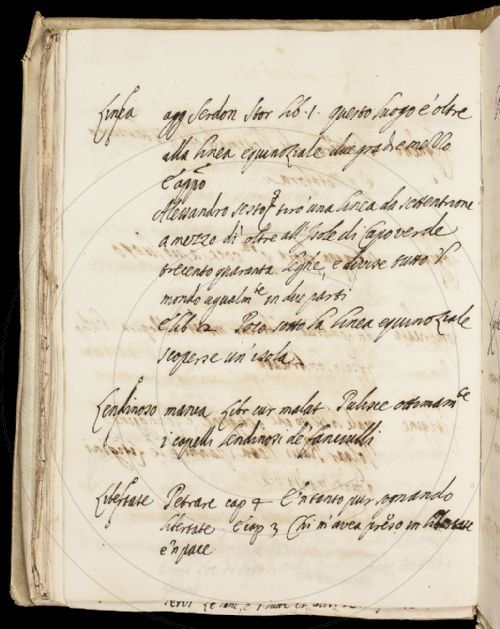 Linea agg Serdon Stor lib. 1. questo luogo è oltre
alla linea equinoziale due gradi e mezzo
E app.o
Alessandro sesto tirò una linea da settentrione
a mezzo dì oltre all'Isole di Capo verde
trecento quaranta leghe, e divise tutto 'l
mondo ugualm.te in due parti
E lib 2 Poco sotto la linea equinoziale
scoperse un'isola
Lendinoso manca Libr cur malat. Pulisce ottimam.te
i capelli lendinosi de' fanciulli
Libertate Petrarc cap 4 E 'ntanto pur sognando
libertate E cap 3 Chi m'avea preso in libertate
e 'n pace